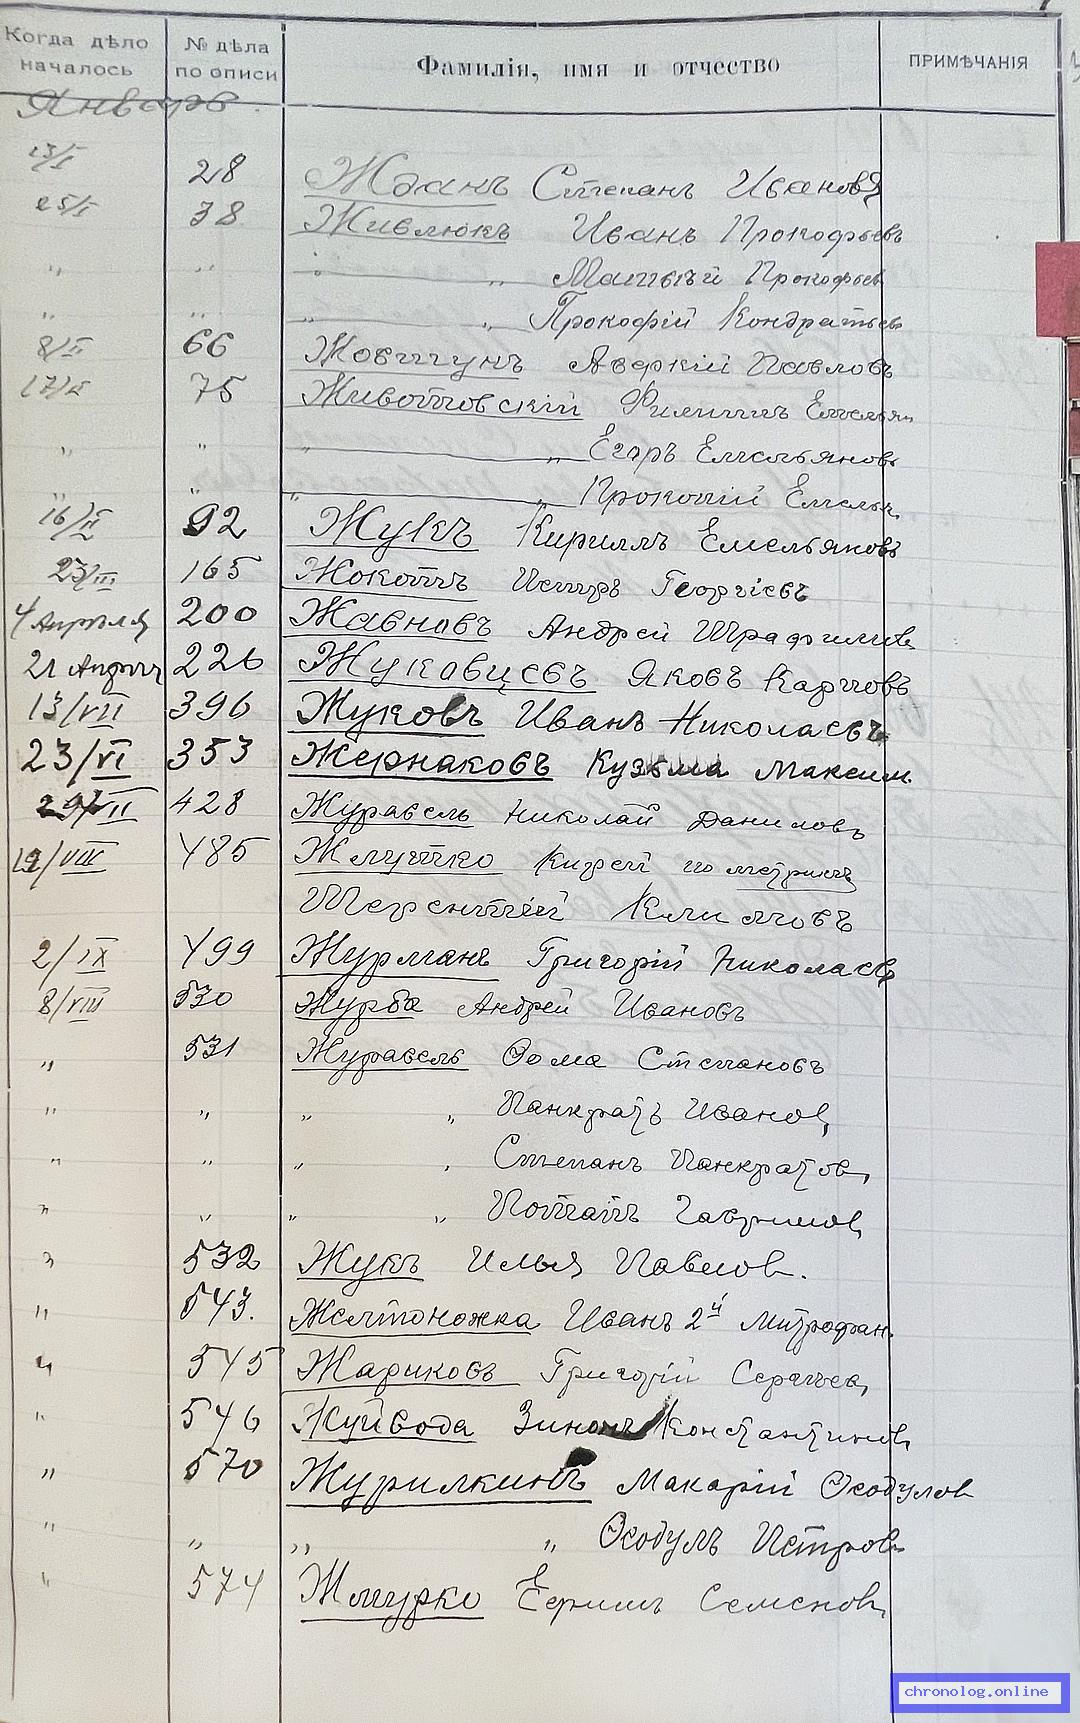 Когда дѣло началось № дѣла по описи Фамилія, имя и отчество ПРИМѢЧАНІЯ
Январь.
13/I 28 Жданъ Степанъ Ивановъ
25/I 38 Живлюкъ Иванъ Прокофьевъ
" " " " Матвѣй Прокофьев
" " " " Прокофій Кондратьев
8/II 66 Жовтунъ Аверкій Павловъ
17/II 75 Животовскій Филиппъ Емельян
" " " " Егоръ Емельяновъ
" " " " Прокопій Емельян
16/II 92 Жукъ Кириллъ Емельяновъ
23/III 165 Жокотъ Петръ Георгіевъ
4 Апрѣля 200 Жавновъ Андрей
21 Апрѣля 226 Жуковцевъ Яковъ Карповъ
13/VII 396 Жуковъ Иванъ Николаевъ
23/VI 353 Жернаковъ Кузьма Максим.
29/VII 428 Журавель Николай Даниловъ
12/VIII 485 Жмутко Кирей по метрикѣ
Терентій Климовъ
2/IX 499 Журманъ Григорій Николаев
8/VIII 530 Журба Андрей Ивановъ
" 531 Журавель Ѳома Степановъ
" " " " Панкратъ Иванов,
" " " " Степанъ Панкратов,
" " " " Потапъ Гаврилов,
" 532 Жукъ Илья Павлов.
" 543. Желтоножка Иванъ 2й Митрофан.
" 545 Жариковъ Григорій Сергѣев,
" 546 Жуйвода Зинонъ Константинов,
" 570 Журилкинъ Макарій Ѳеодулов
" " " " Ѳеодулъ Петров.
" 574 Жмурко Ефимъ Семенов,
chronolog.online